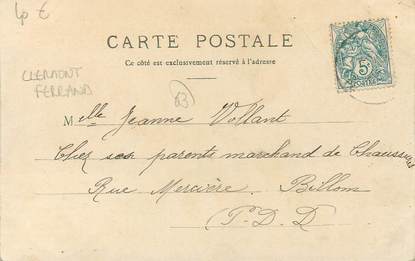 4p €
CARTE POSTALE
Ce côté est exclusivement réservé à l'adresse
5c
POSTES
CLERMONT
FERRAND
63
Melle Jeanne Vollant
Chez ses parents marchand de Chaussures
Rue Mercière. Billom
(P. D. D)